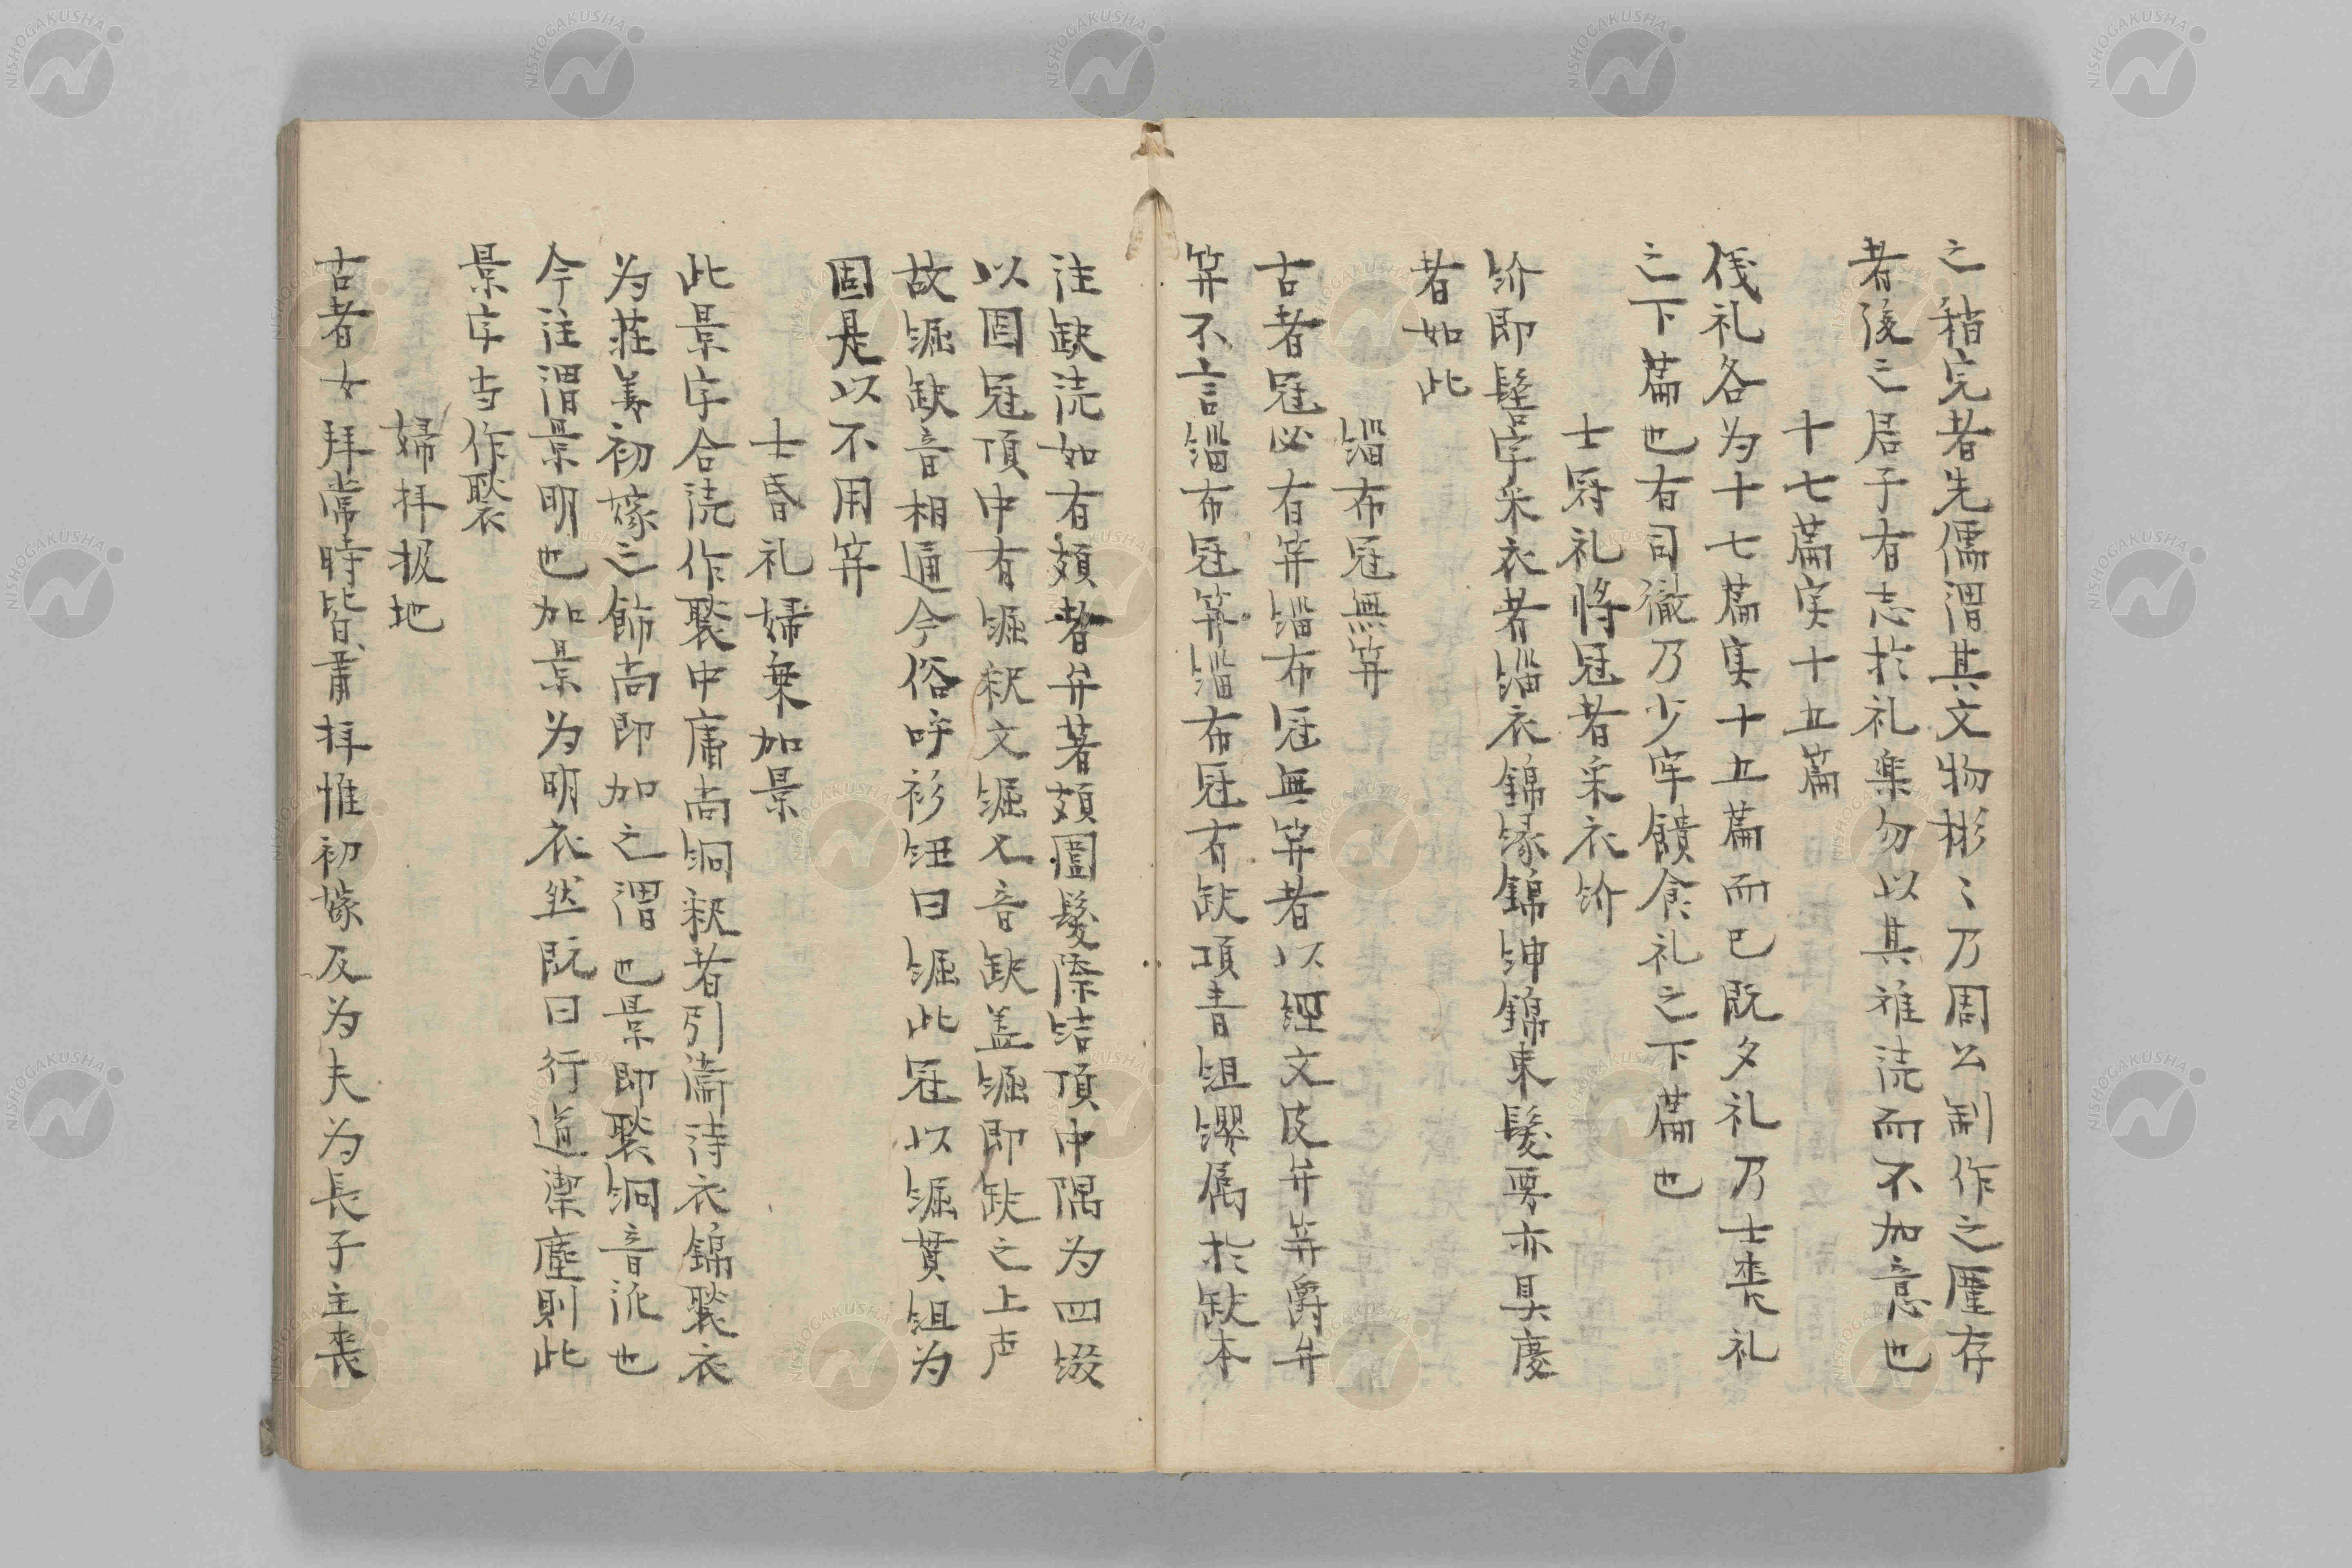 之稍完者先儒謂其文物彬〻乃周公制作之厪存
者後之居子有志於礼楽勿以其難読而不加意也
十七篇実十五篇
儀礼各为十七篇実十五篇而已既夕礼乃士喪礼
之下篇也有司徹乃少牢饋食礼之下篇也
士冠礼将冠者采衣紒
紒即髻字采衣者緇衣錦緣錦紳錦束髪要亦具慶
者如此
緇布冠無笄
古者冠必有笄緇布冠無笄者以経文皮弁笄爵弁
笄不言緇布冠笄緇布冠有缺項青組纓属於缺本
注缺読如有頍者弁著頍圍髪際結項中隅为四綴
以固冠項中有𦀌釈文𦀌又音缺盖𦀌即缺之上声
故𦀌缺音相通今俗呼衫紐曰𦀌此冠以𦀌貫組为
固是以不用笄
士昏礼婦乗加景
此景字合読作褧中庸尚絅釈者引衛詩衣錦褧衣
为莊姜初嫁之飾尚即加之謂也景即褧絅音泒也
今注謂景明也加景为明衣然既曰行道禦塵則此
景字寺作褧
婦拝扱地
古者女拝常時皆肅拝惟初嫁及为夫为長子主喪
NISHOGAKUSHA